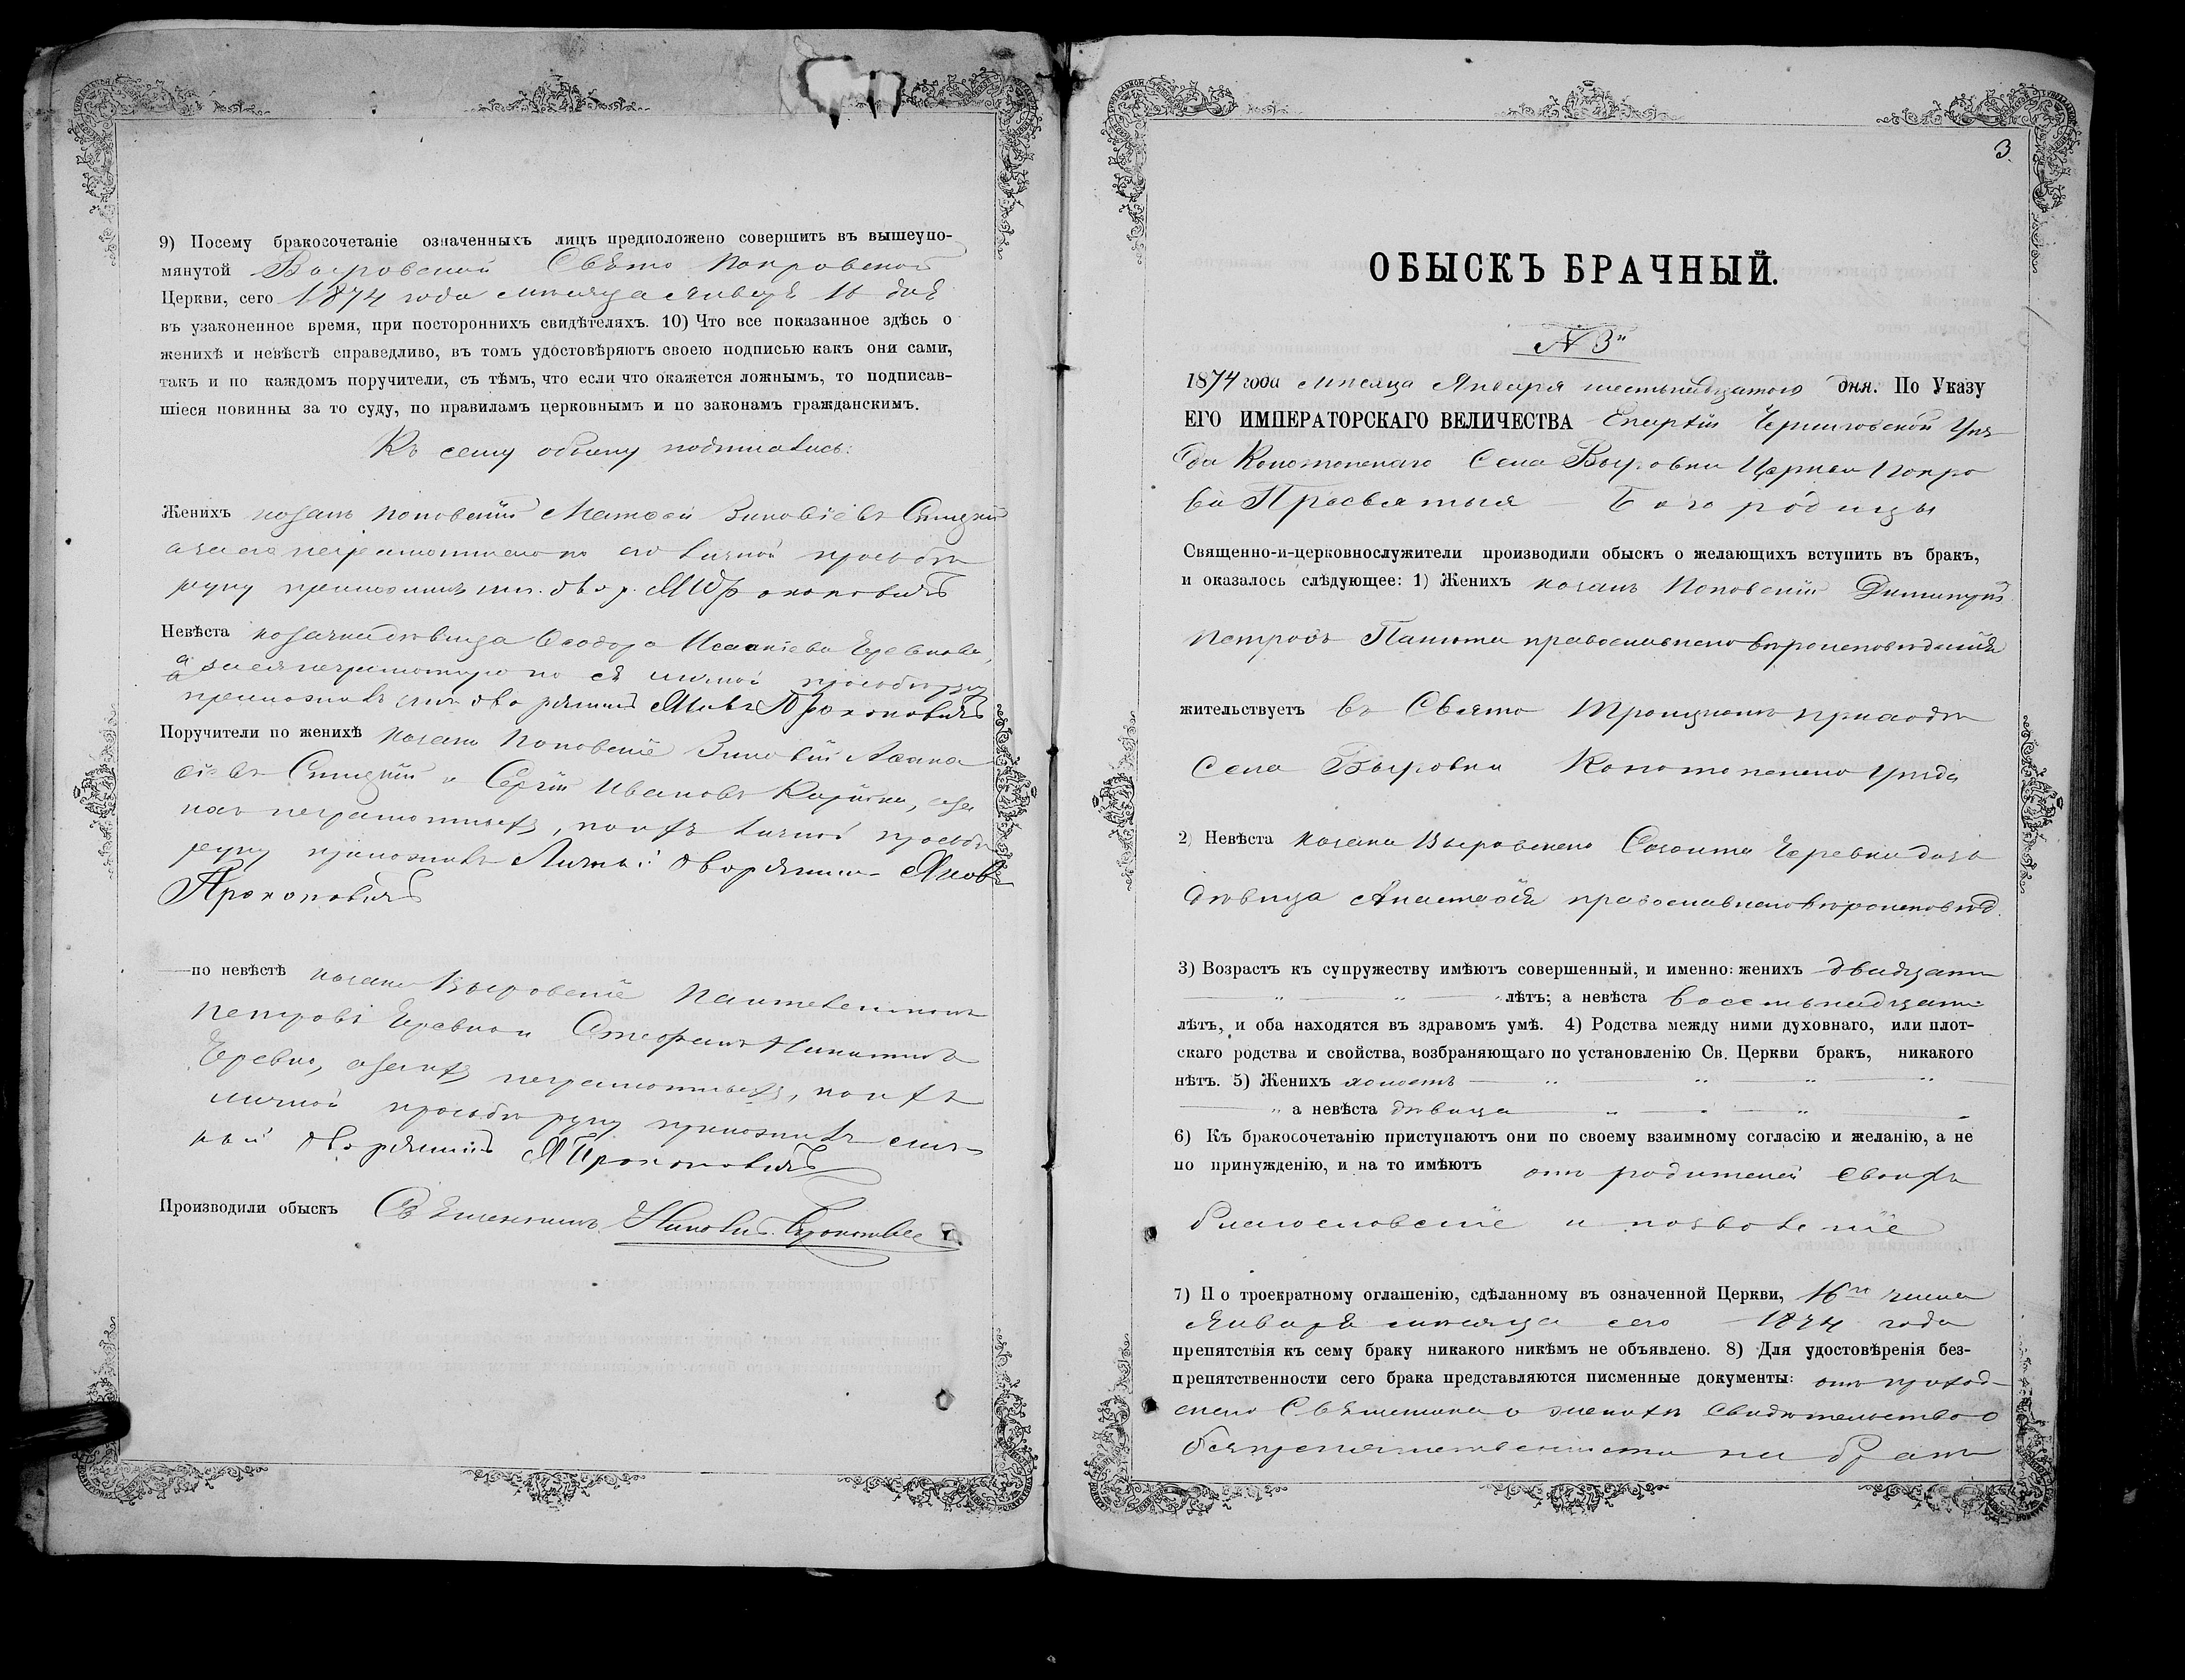 9) Посему бракосочетаніе означенныхъ лицъ предположено совершить въ вышеупо-
мянутой Выровской Свято Покровской
Церкви, сего 1874 года мѣсяца Января 16 дня
въ узаконенное время, при постороннихъ свидѣтеляхъ. 10) Что все показанное здѣсь о
женихѣ и невѣстѣ справедливо, въ томъ удостовѣряютъ своею подписью какъ они сами,
такъ и по каждомъ поручители, съ тѣмъ, что если что окажется ложнымъ, то подписав-
шіеся повинны за то суду, по правиламъ церковнымъ и по законамъ гражданскимъ.
Къ сему обыску подписались:
Женихъ козакъ Поповскій Матѳей Зиновіевъ
а за его неграмотнаго по его личной просьбѣ
руку приложилъ двор. Я Прокоповичъ
Невѣста козачка дѣвица Ѳеодора Исаакіева Черевкова,
а за ея неграмотную по ея личной просьбѣ руку
приложилъ дворянинъ Яковъ Прокоповичъ
Поручители по женихѣ козаки Поповскіе Зиновій Аѳана
сіевъ и Сергій Ивановъ
неграмотныхъ, по ихъ личной просьбѣ
руку приложилъ Личный дворянинъ Яковъ
Прокоповичъ
—по невѣстѣ козаки Выровскіе Пантелеимонъ
Петровъ Черевко и Стефанъ Никитинъ
Черевко, а за ихъ неграмотныхъ, по ихъ
личной просьбѣ руку приложилъ лич-
ный дворянинъ Я Прокоповичъ
Производили обыскъ Священникъ
3.
ОБЫСКЪ БРАЧНЫЙ.
N 3й
1874 года мѣсяца Января шестьнадцатого дня. По Указу
ЕГО ИМПЕРАТОРСКАГО ВЕЛИЧЕСТВА Епархіи Черниговской Уѣз
да Конотопскаго Села Выровки Церкви Покро
ва Пресвятыя Богородицы
Священно-и-церковнослужители производили обыскъ о желающихъ вступить въ бракъ,
и оказалось слѣдующее: 1) Женихъ козакъ Поповскій Димитрій
Петровъ православнаго вѣроисповѣданія
жительствуетъ въ Свято Троицкомъ приходѣ
Села Выровки Конотопскаго уѣзда
2) Невѣста козака Выровскаго Созонта Черевка дочь
дѣвица Анастасія православнаго вѣроисповѣд.
3) Возрастъ къ супружеству имѣютъ совершенный, и именно: женихъ двадцати
лѣтъ; а невѣста восемьнадцати
лѣтъ, и оба находятся въ здравомъ умѣ. 4) Родства между ними духовнаго, или плот-
скаго родства и свойства, возбраняющаго по установленію Св. Церкви бракъ, никакого
нѣтъ. 5) Женихъ холостъ
а невѣста дѣвица
6) Къ бракосочетанію приступаютъ они по своему взаимному согласію и желанію, а не
по принужденію, и на то имѣютъ отъ родителей своихъ
благословеніе и позволеніе
7) По троекратному оглашенію, сдѣланному въ означенной Церкви, 16го числа
Января мѣсяца сего 1874 года
препятствія къ сему браку никакого никѣмъ не объявлено. 8) Для удостовѣренія без-
препятственности сего брака представляются писменные документы: отъ приход-
скаго Священника о женихѣ свидѣтельство о
безпрепятственности на бракъ